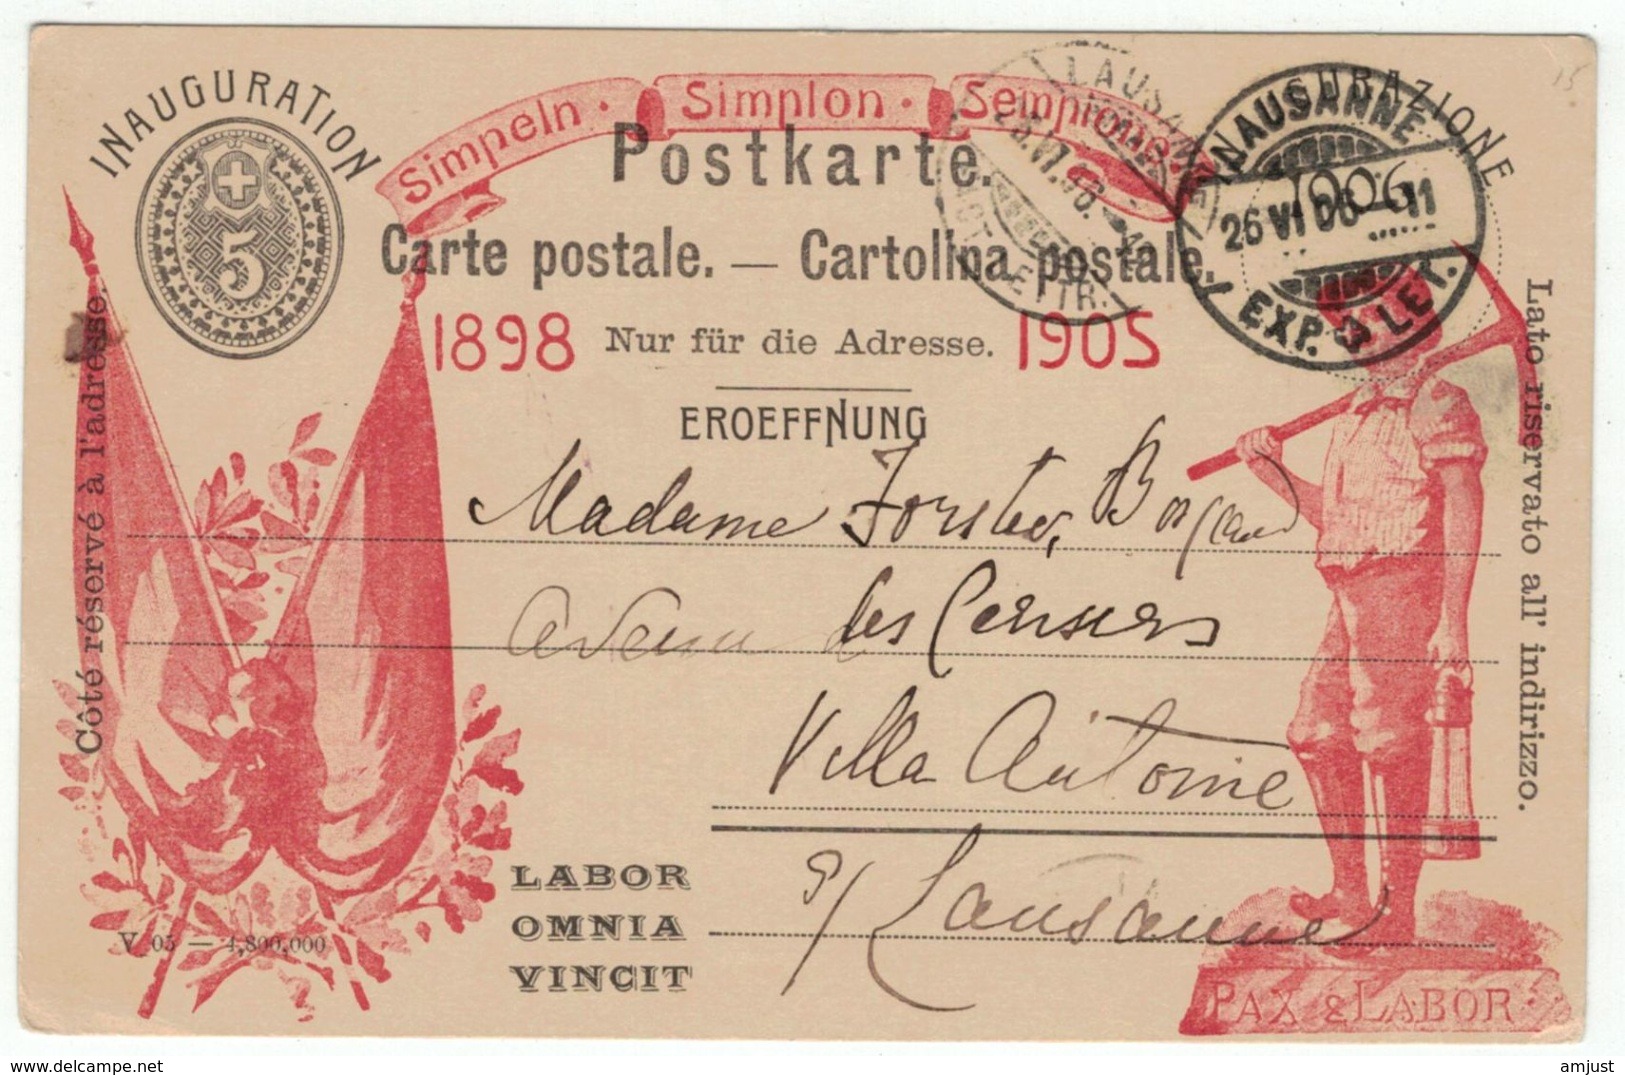 INAUGURATION
5
Simpeln · Simplon · Sempione
INAUGURAZIONE
1906
LAUSANNE
26 VI 06 — 11
EXP. LET.
LAUSANNE
LETTR.
Postkarte.
Carte postale. — Cartolina postale.
1898 Nur für die Adresse. 1905
EROEFFNUNG
Côté réservé à l'adresse.
Lato riservato all' indirizzo.
Madame Forster,
des
Villa Antoine
s/ Lausanne
LABOR
OMNIA
VINCIT
V 05 — 4,800,000
PAX & LABOR
15
delcampe.net
amjust